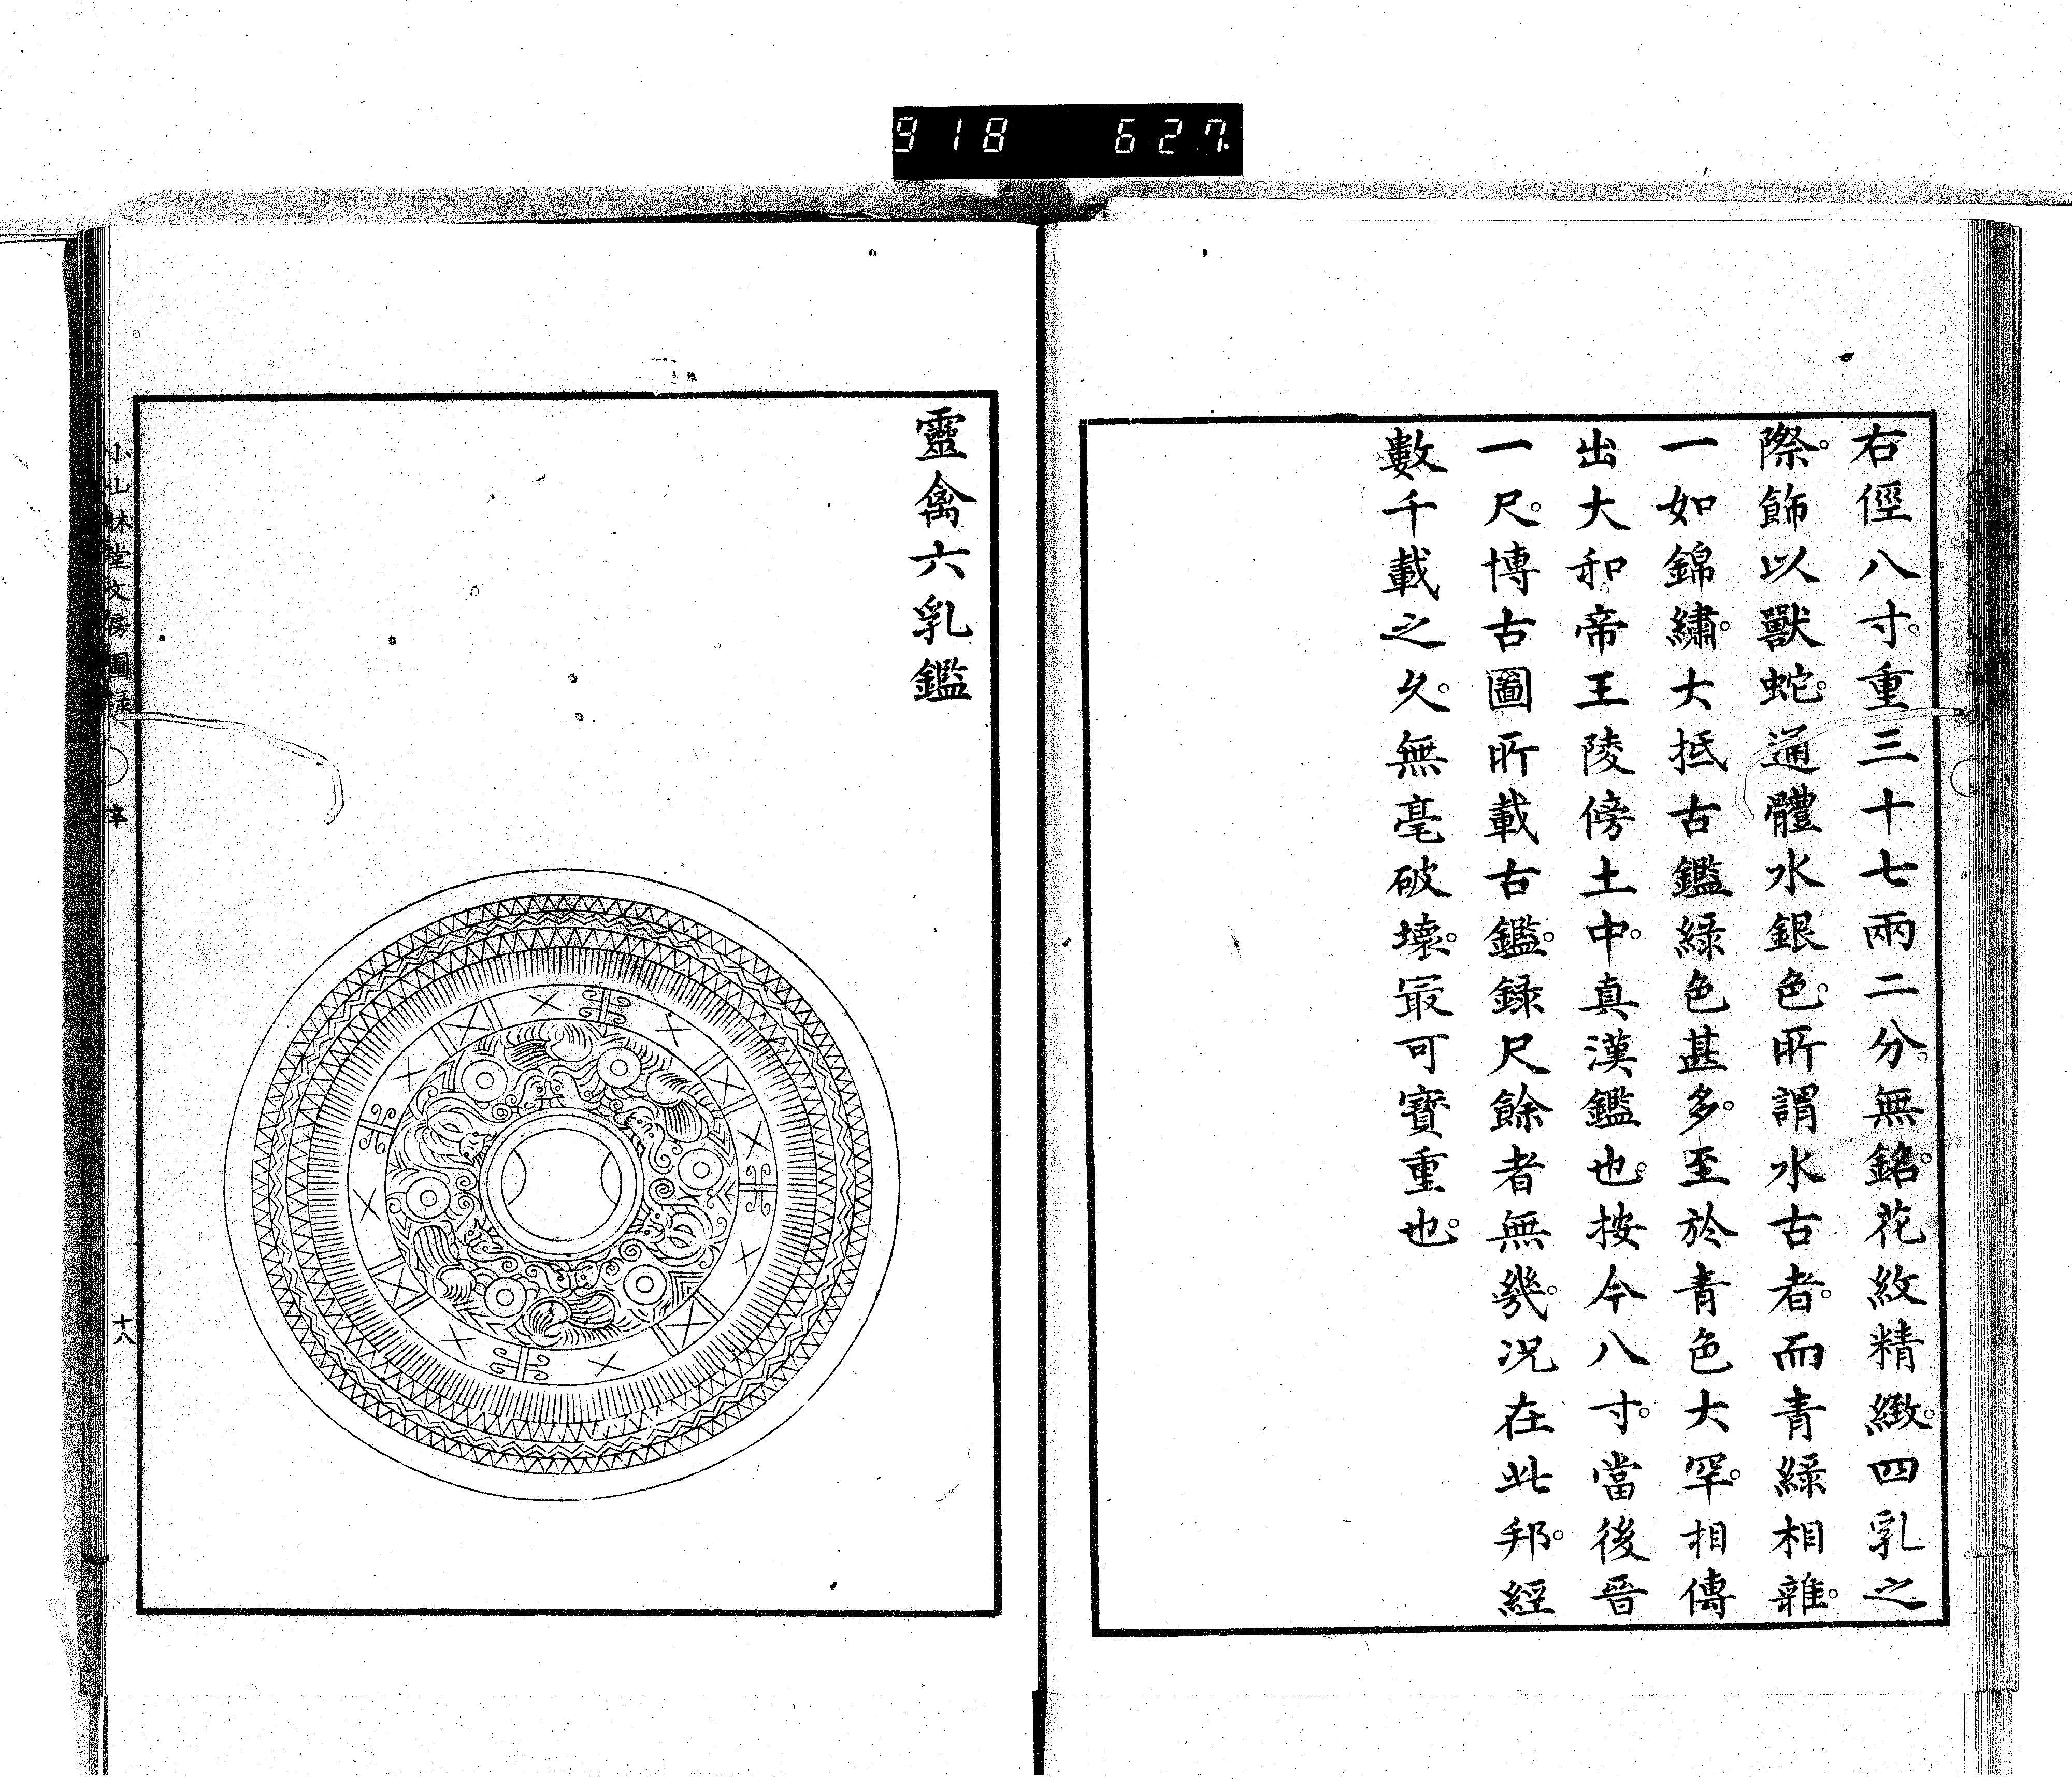 918 627
右徑八寸。重三十七兩二分。無銘。花紋精緻。四乳之
際。飾以獸蛇。通體水銀色。所謂水古者。而青綠相雜。
一如錦繡。大抵古鑑綠色甚多。至於青色大罕。相傳
出大和帝王陵傍土中。真漢鑑也。按今八寸。當後晉
一尺。博古圖所載古鑑。錄尺餘者無幾。況在此邦。經
數千載之久。無毫破壞。最可寶重也。
靈禽六乳鑑
小山林堂文房圖錄
辛
十八